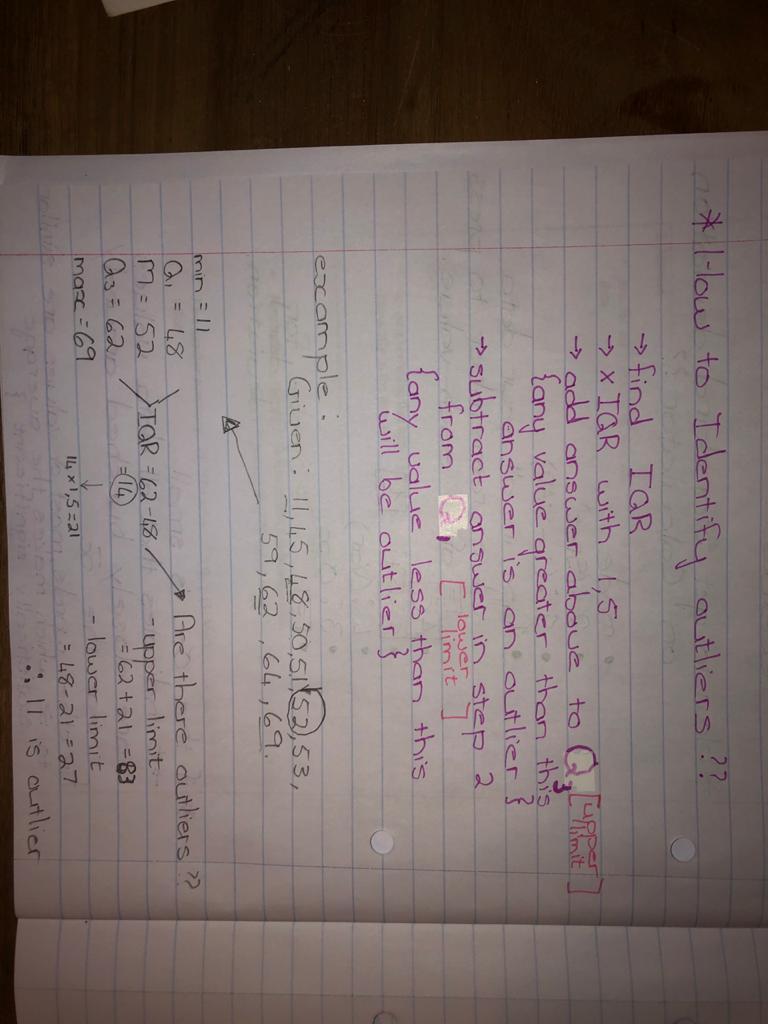 * How to Identify outliers ??
→ find IQR
→ x IQR with 1,5
→ add answer above to Q3 [upper limit]
{any value greater than this
answer is an outlier}
→ subtract answer in step 2
from Q1 [lower limit]
{any value less than this
will be outlier}
example:
Given: 11, 45, 48, 50, 51, 52, 53,
59, 62, 64, 69.
min = 11
Q1 = 48
M = 52
Q3 = 62
max = 69
IQR = 62-48
= 14
14 x 1,5 = 21
Are there outliers ??
- upper limit
= 62 + 21 = 83
- lower limit
= 48 - 21 = 27
∴ 11 is outlier